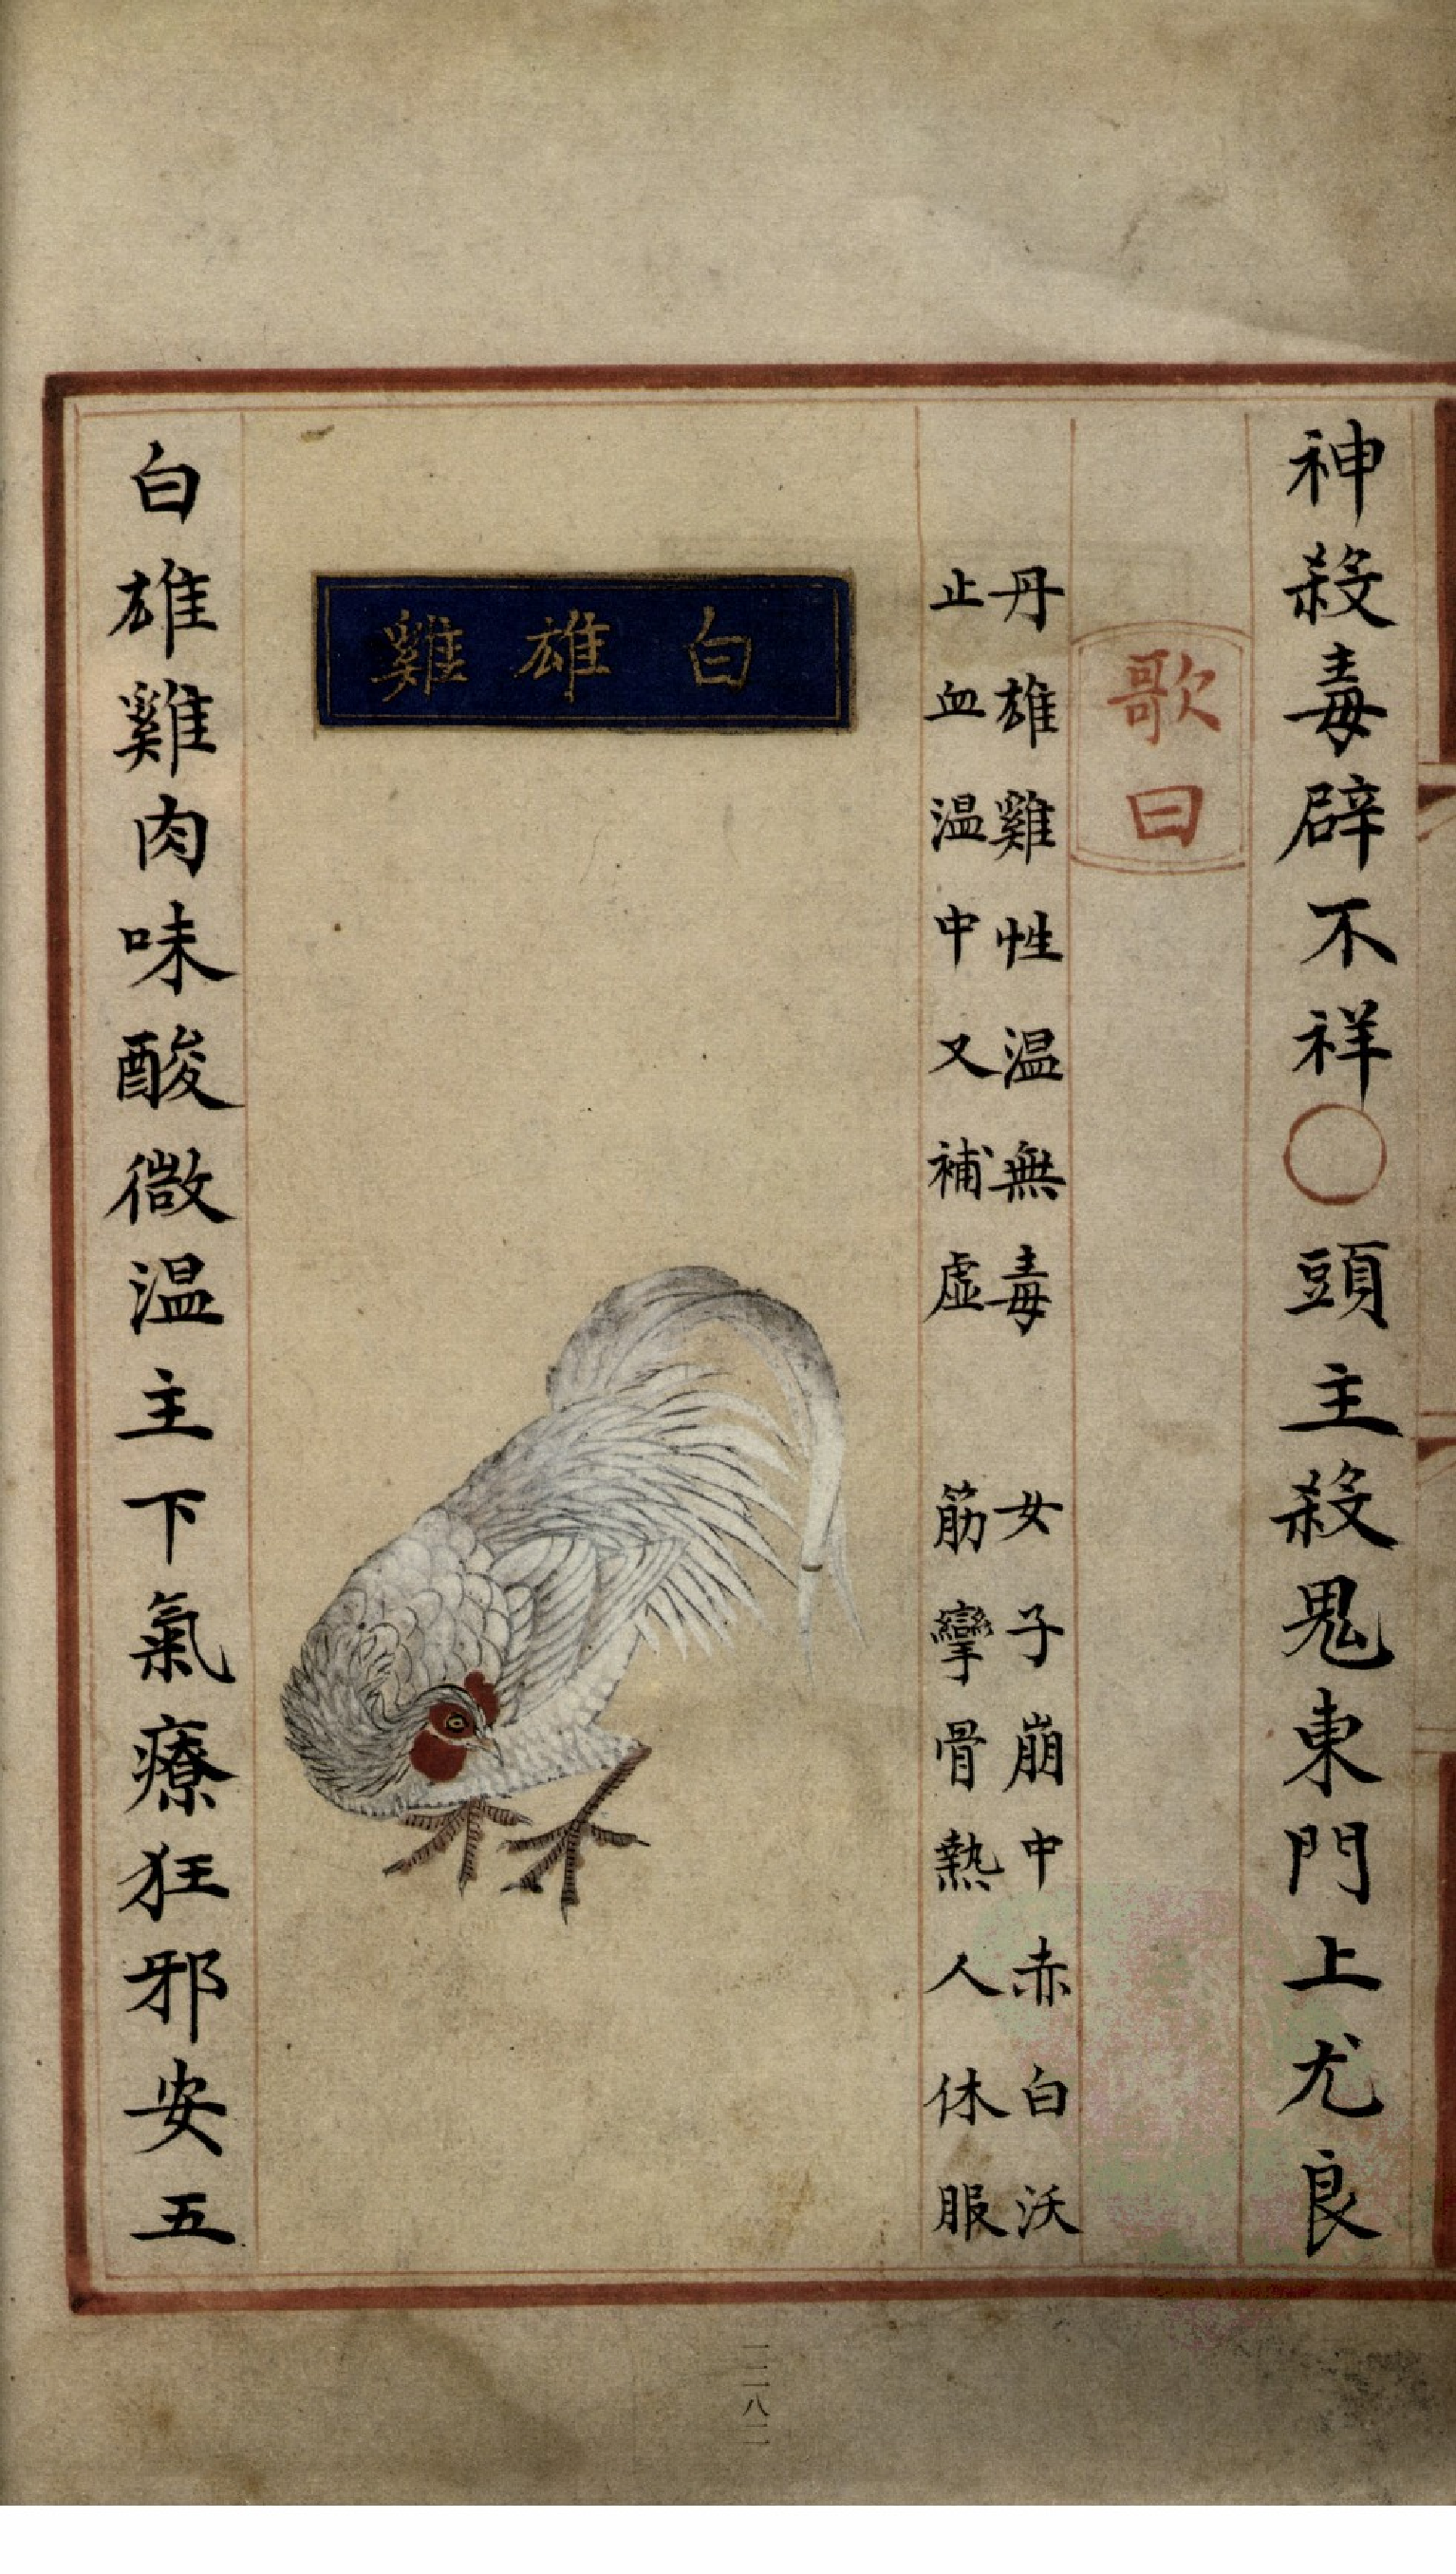 神殺毒辟不祥〇頭主殺鬼東門上尤良
歌曰
丹雄雞性温無毒 女子崩中赤白沃
止血温中又補虛 筋攣骨熱人休服
白雄雞
白雄雞肉味酸微温主下氣療狂邪安五
一二八二